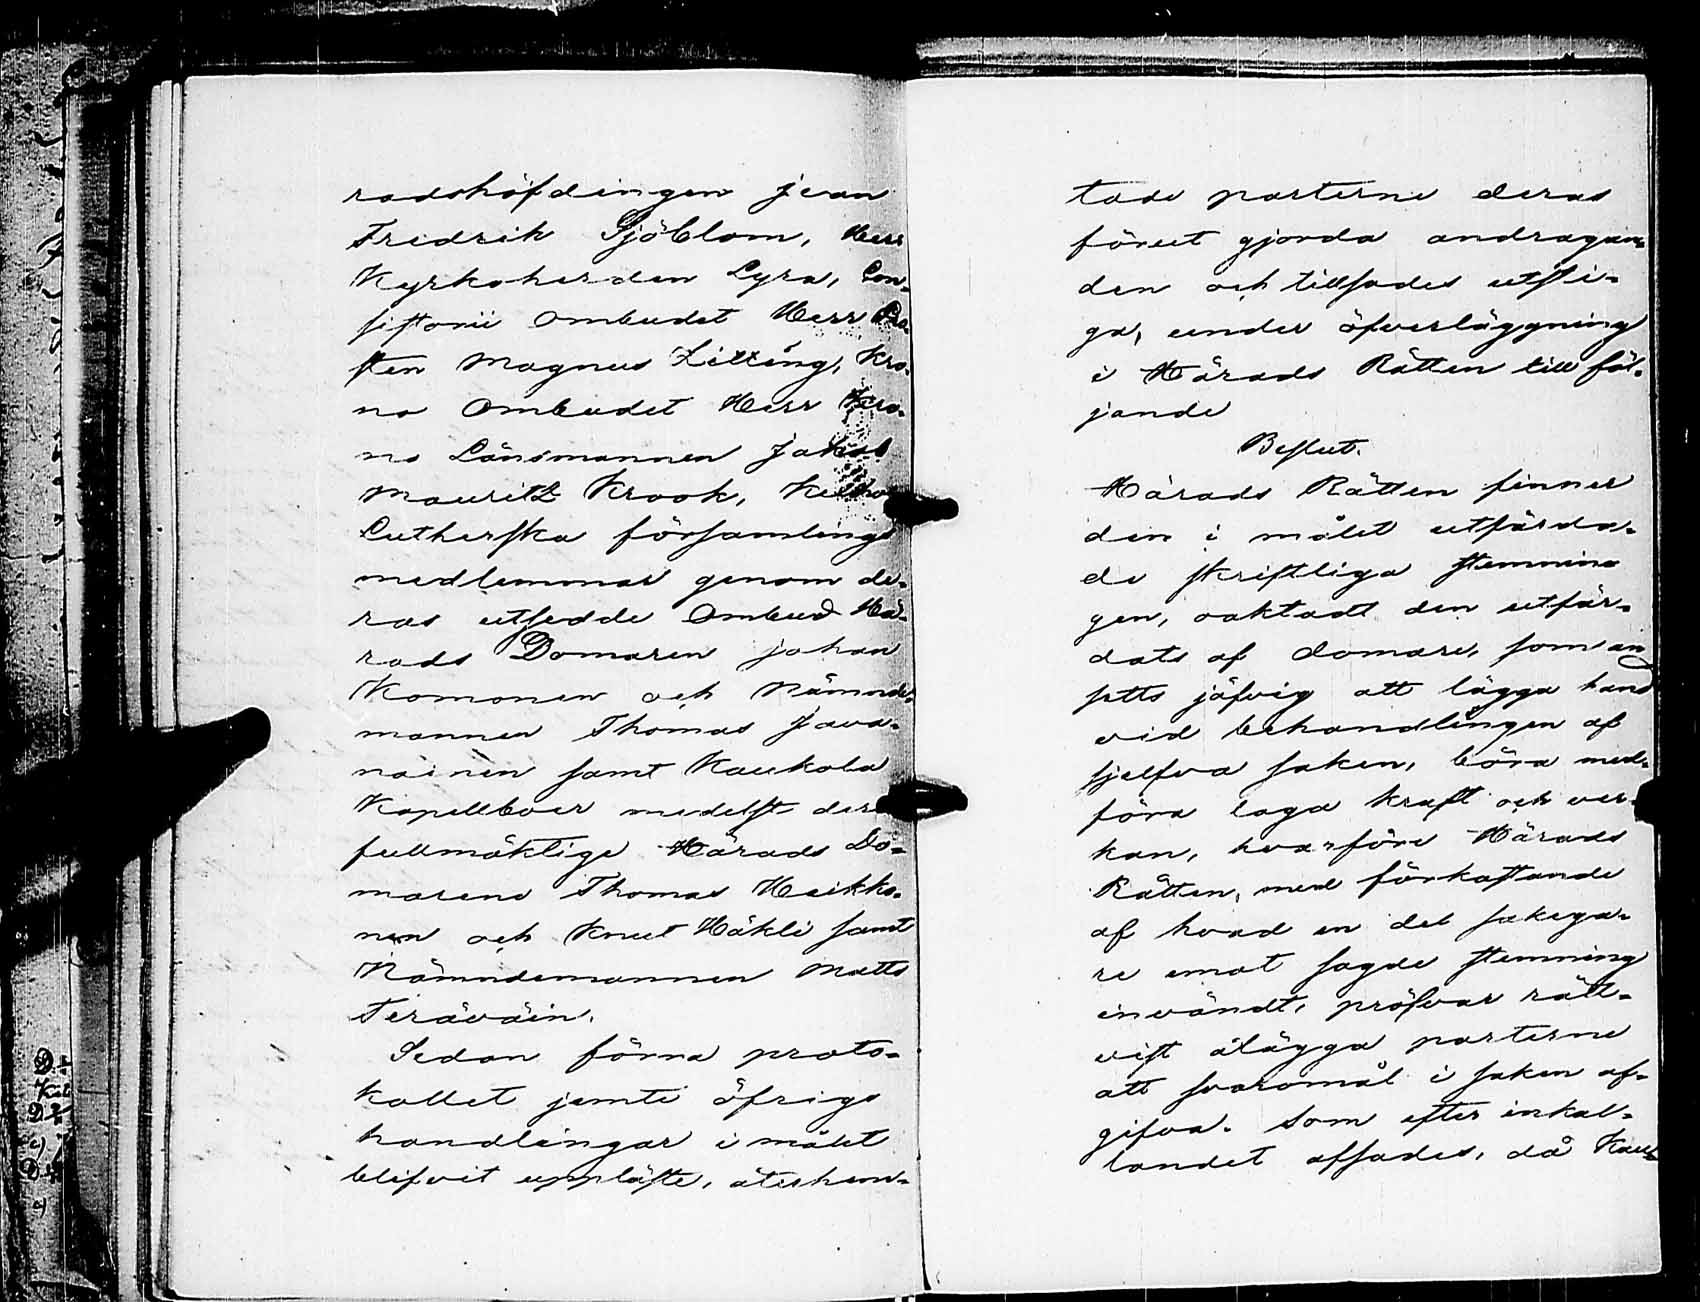 radshöfdingen Jean
Fredrik Sjöblom, Herr
Kyrkoherden Lyra, Con-
sistorii ombudet Herr Pro-
sten Magnus Zitting, Kro-
no Ombudet Herr Kro-
no Länsmannen Jakob
Mauritz Krook, Kexholms
Lutherska församlings
medlemmar genom de-
ras utsedde Ombud Hä-
rads Domaren Johan
Komonen och Nämnde-
mannen Thomas Java-
nainen samt Kaukola
Kapellboer medelst deras
fullmäktige Härads Do-
marene Thomas Heikko-
nen och Knut Häkli samt
Nämndemannen Matts
Teräväin.
Sedan förra proto-
kollet jemte öfriga
handlingar i målet
blifvit uppläste, återkom-
tade parterne deras
förut gjorda andragan-
den och tillsades utsti-
ga, under öfverläggning
i Härads Rätten till föl-
jande
Beslut.
Härads Rätten finner
den i målet utfärda-
de skriftliga stemnin-
gen, oaktadt den utfär-
dats af domare, som an-
setts jäfvig att lägga hand
vid behandlingen af
sjelfva saken, böra med-
föra laga kraft och ver-
kan, hvarföre Härads
Rätten, med förkastande
af hvad en del sakega-
re emot sagde stemning
invändt, pröfvar rätt-
vist ålägga parterne
att svaromål i saken af-
gifva. Som efter inkal-
landet afsades, då Kau-